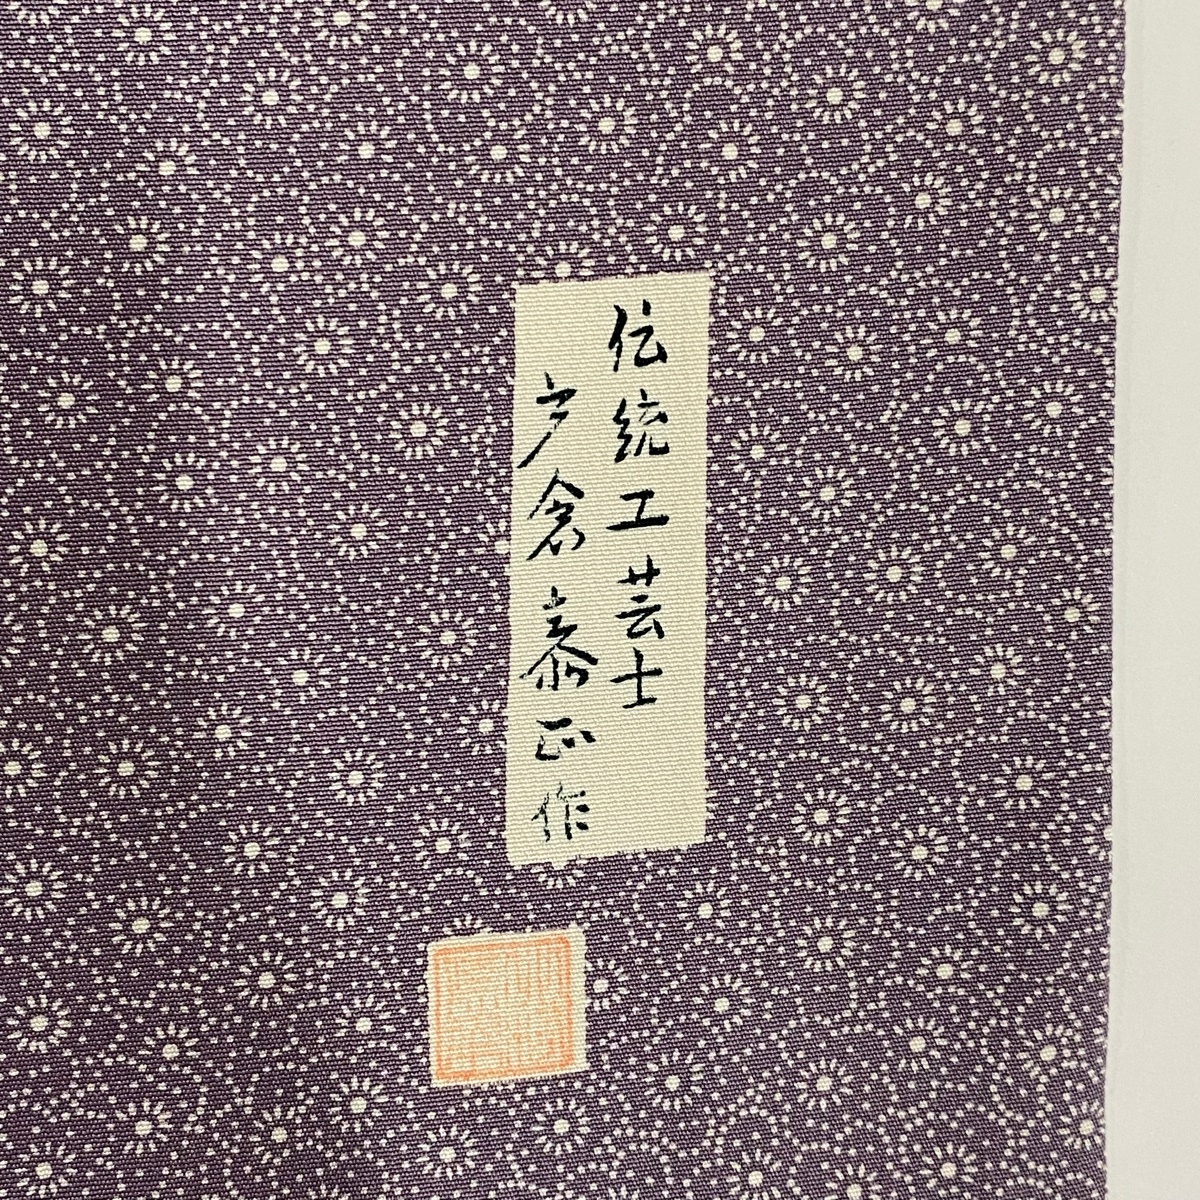 伝統工芸士
戸倉泰正作